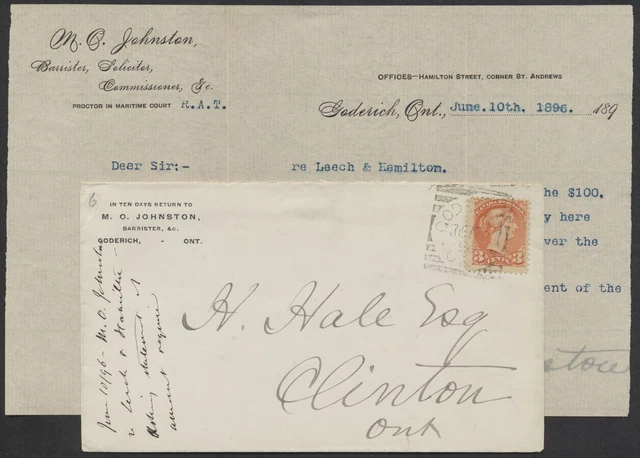 M. O. Johnston,
Barrister, Solicitor,
Commissioner, &c.
PROCTOR IN MARITIME COURT R.A.T.
OFFICES—HAMILTON STREET, CORNER ST. ANDREWS
Goderich, Ont., June.10th. 1896. 189
Dear Sir:- re Leech & Hamilton.
he $100.
y here
ver the
ent of the
6
IN TEN DAYS RETURN TO
M. O. JOHNSTON,
BARRISTER, &c.
GODERICH, - ONT.
GOD
3 CENTS 3
H. Hale Esq
Clinton
Ont
June 10/96 - M. O. Johnston
re Leech & Hamilton -
Asking statement of
amount required